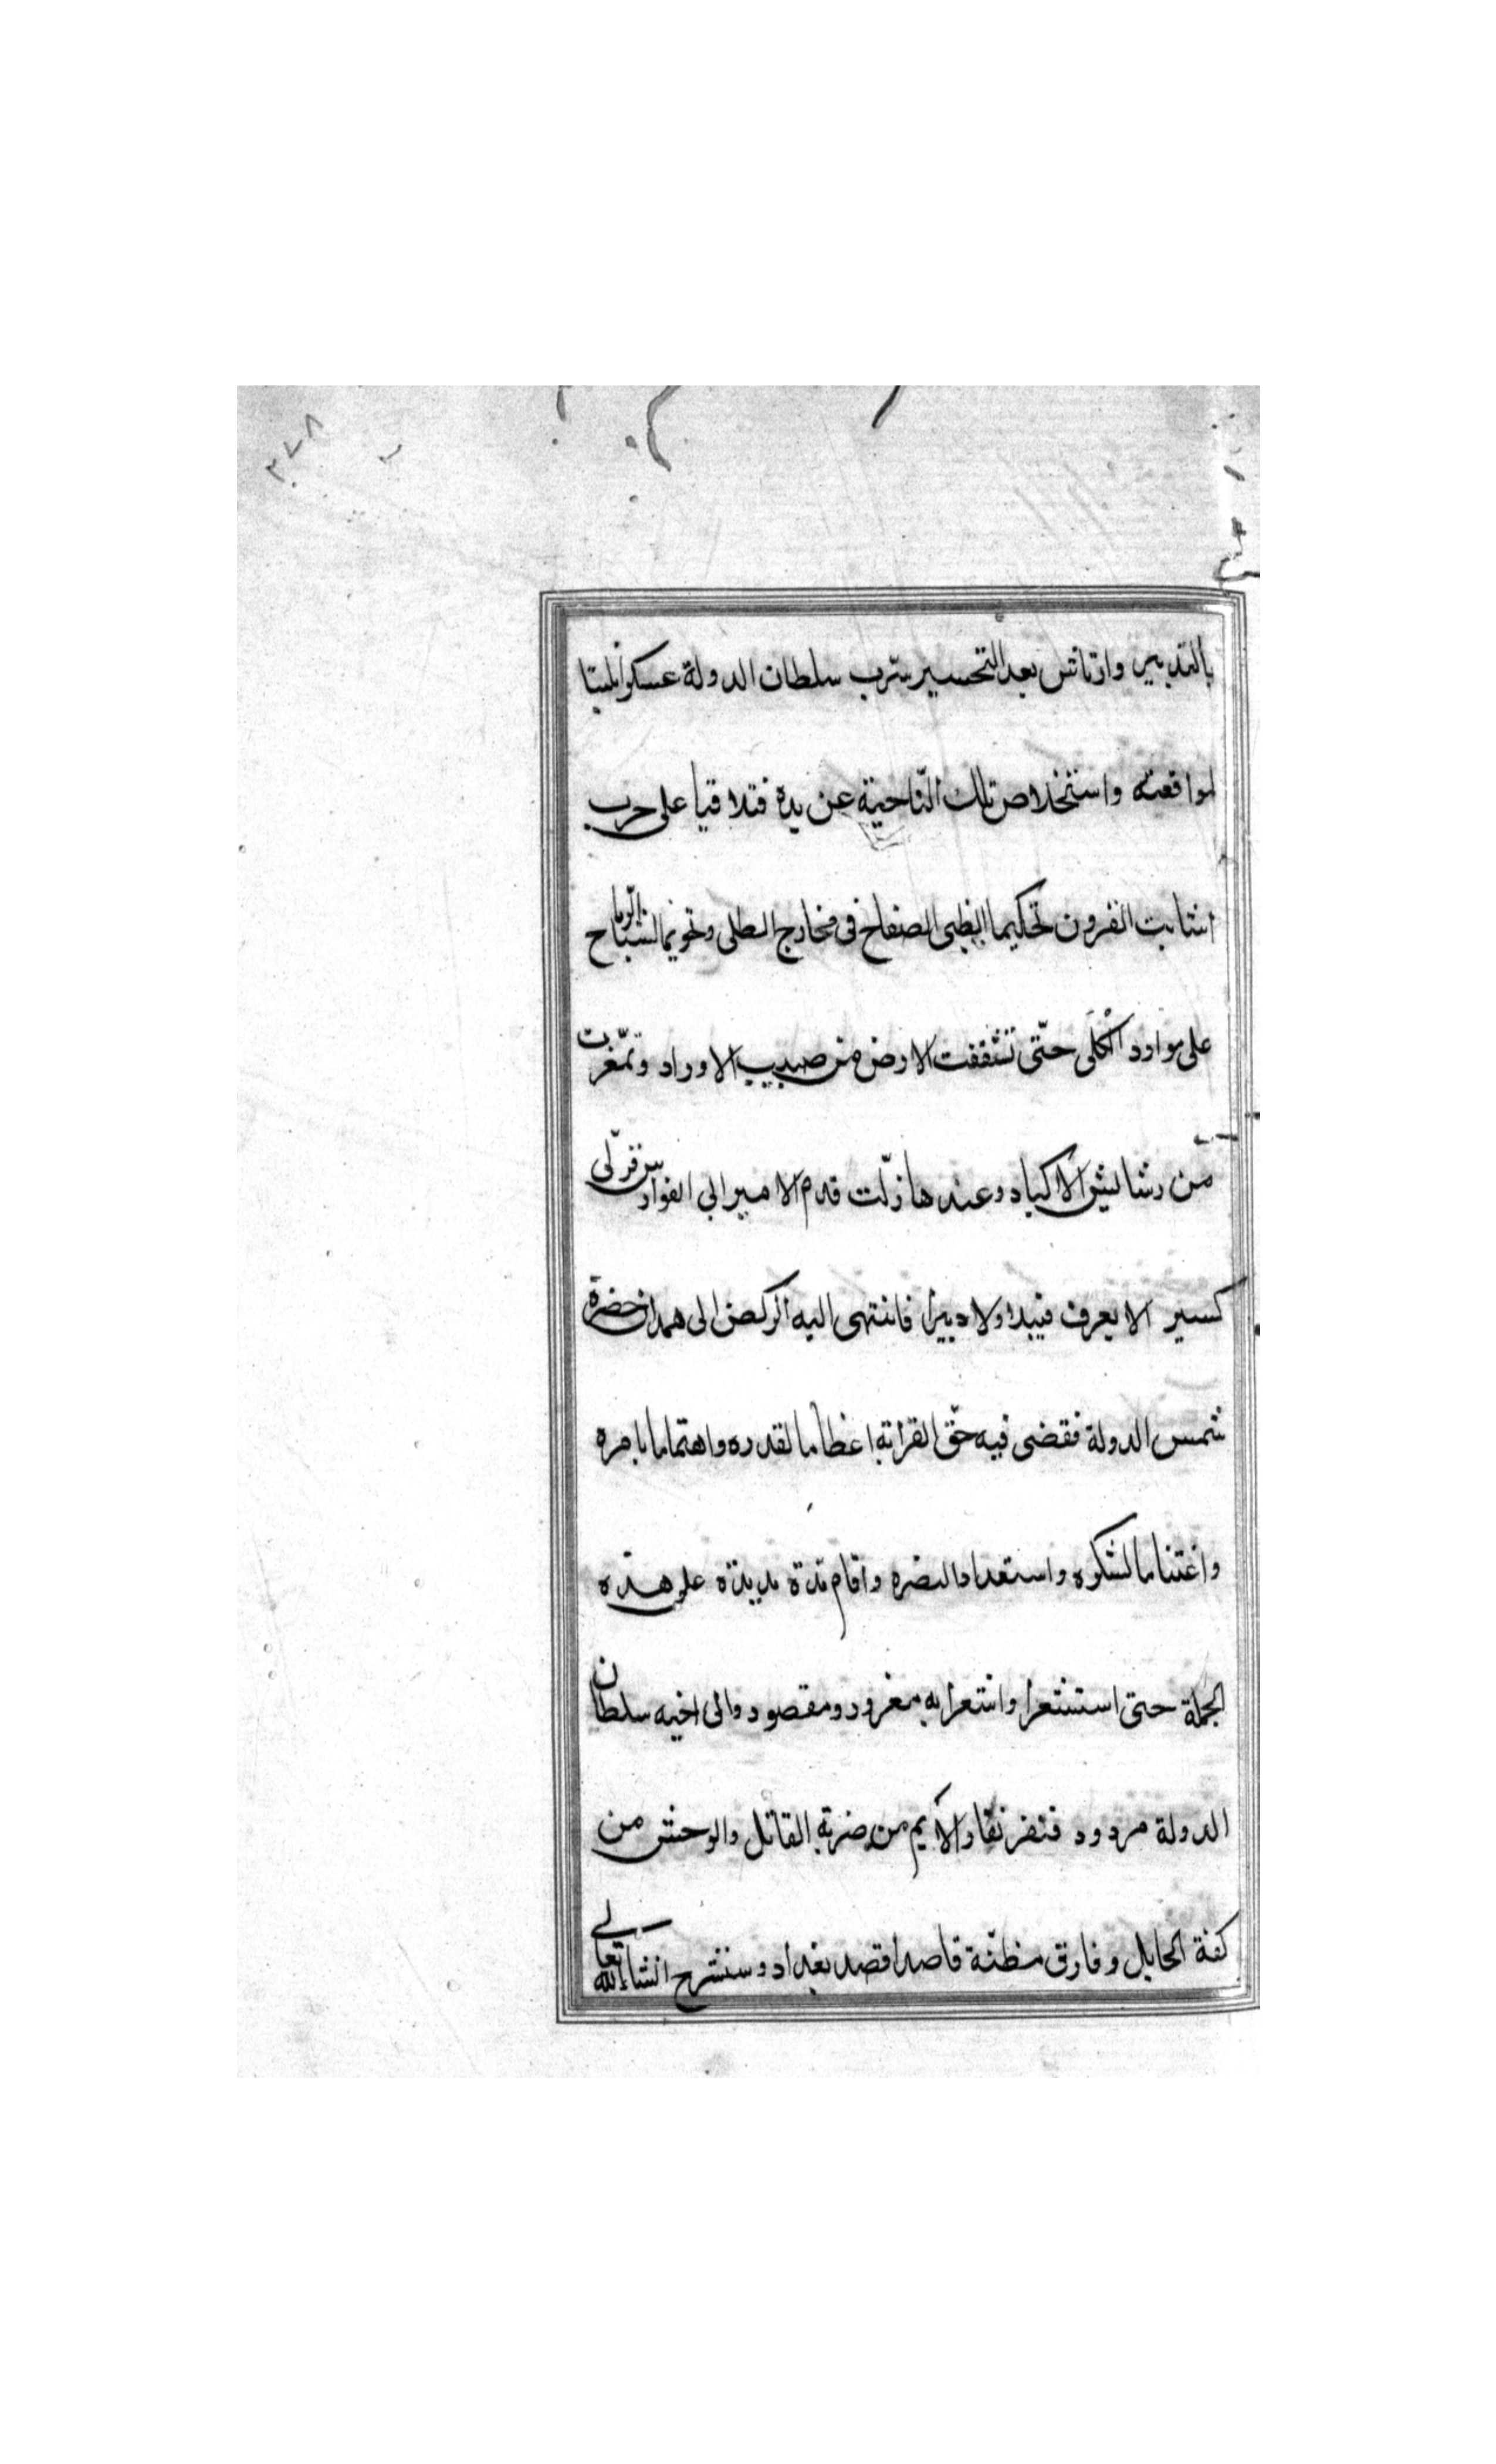 ٢٧٨
بالتدبير وارتاش بعد التحسير سرب سلطان الدولة عسكرا ثلبتا
لمواقعته واستخلاص تلك النّاحية عن يده فتلاقيا على حرب
اشابت القرون تحكيما الظبى الصفاح فى مخارج الطلى وتحويما لشبا الرماح
على موارد الكلى حتّى تشففت الارض من صبيب الاوراد وتمّغرت
من رشاش الاكباد وعندها زلّت قدم الامير ابي الفوارس فولّى
كسير الا يعرف قبيلا ولا دبيرا فانتهى اليه الركض الى همدان حضرة
شمس الدولة فقضى فيه حقّ القرابة اعظاما لقدره واهتماما بامره
واغتناما لشكره واستعدادا لنصره واقام مدّة مديدة على هذه
الجملة حتى استشعرا واشعرا به مغرور ومقصود والى اخيه سلطان
الدولة مردود فنفر نفار الايم من ضربة القاتل والوحش من
كفة الحابل وفارق مظنّة قاصدا قصد بغداد وسنشرح انشاءالله تعالى